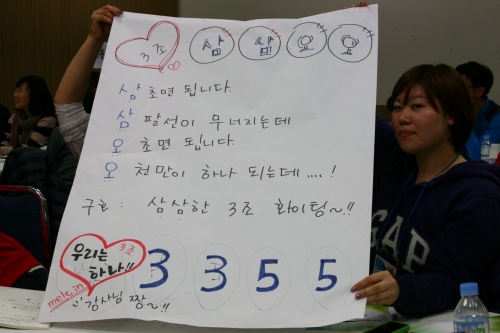 3조 삼 삼 오 오
삼 초면 됩니다.
삼 팔선이 무너지는데
오 초면 됩니다.
오 천만이 하나 되는데....!
구호 : 삼삼한 3조 화이팅~!!
3조
우리는
하나!!
3 3 5 5
강사님 짱~!!
GAP